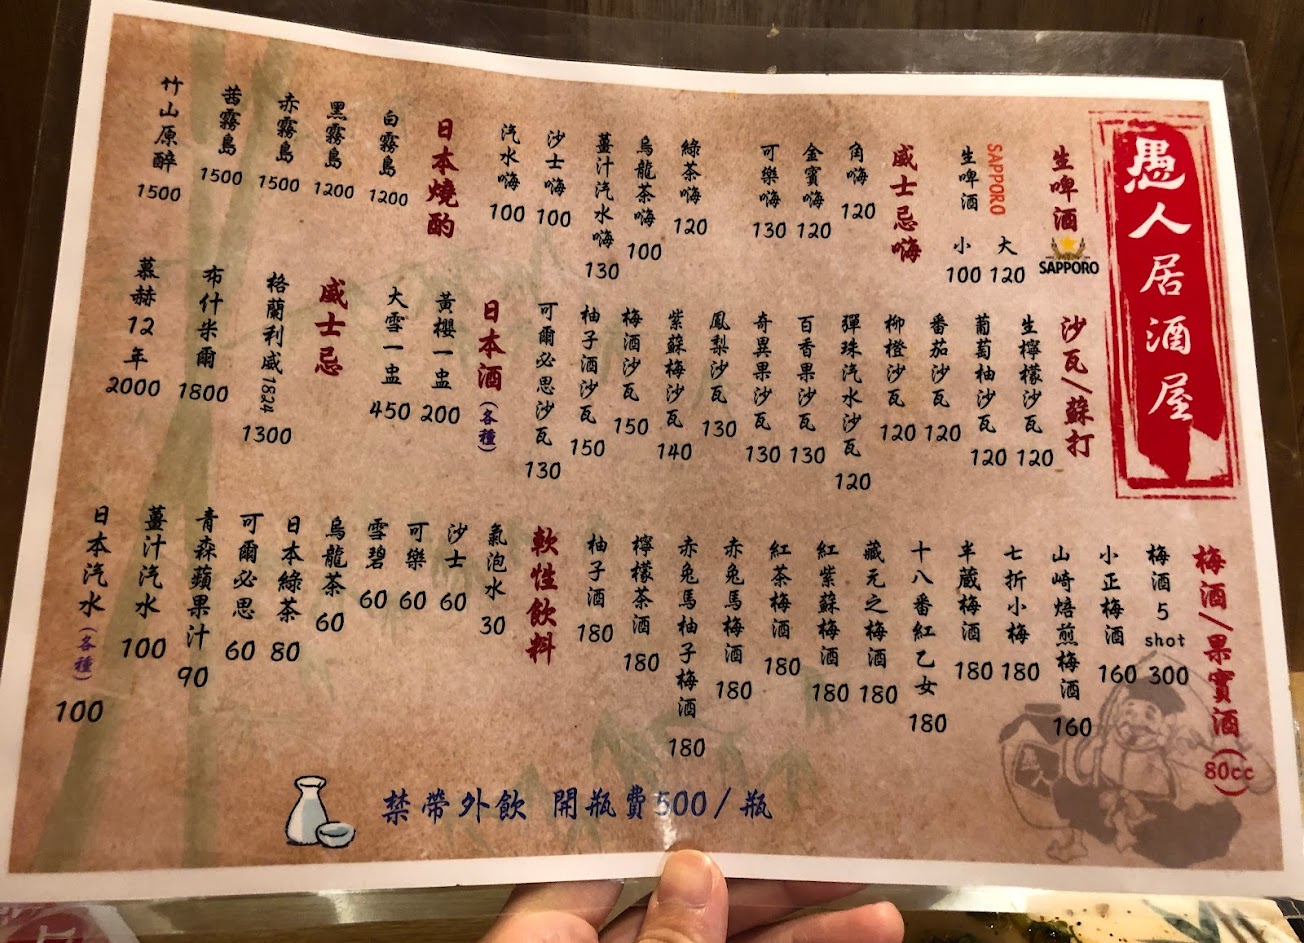 愚人居酒屋
生啤酒
SAPPORO
SAPPORO
生啤酒
大 120
小 100
威士忌嗨
角嗨 120
金賓嗨 120
可樂嗨 130
綠茶嗨 120
烏龍茶嗨 100
薑汁汽水嗨 130
沙士嗨 100
汽水嗨 100
日本燒酌
白霧島 1200
黑霧島 1200
赤霧島 1500
茜霧島 1500
竹山原醉 1500
沙瓦/蘇打
生檸檬沙瓦 120
葡萄柚沙瓦 120
番茄沙瓦 120
柳橙沙瓦 120
彈珠汽水沙瓦 120
百香果沙瓦 130
奇異果沙瓦 130
鳳梨沙瓦 130
紫蘇梅沙瓦 140
梅酒沙瓦 150
柚子酒沙瓦 150
可爾必思沙瓦 130
日本酒(各種)
黃櫻一盅 200
大雪一盅 450
威士忌
格蘭利威1824 1300
布什米爾 1800
慕赫12年 2000
梅酒/果實酒(80cc)
梅酒5shot 300
小正梅酒 160
山崎焙煎梅酒 160
七折小梅 180
半蔵梅酒 180
十八番紅乙女 180
藏元之梅酒 180
紅紫蘇梅酒 180
紅茶梅酒 180
赤兔馬梅酒 180
赤兔馬柚子梅酒 180
檸檬茶酒 180
柚子酒 180
軟性飲料
氣泡水 30
沙士 60
可樂 60
雪碧 60
烏龍茶 60
日本綠茶 80
可爾必思 60
青森蘋果汁 90
薑汁汽水 100
日本汽水(各種) 100
禁帶外飲 開瓶費500/瓶